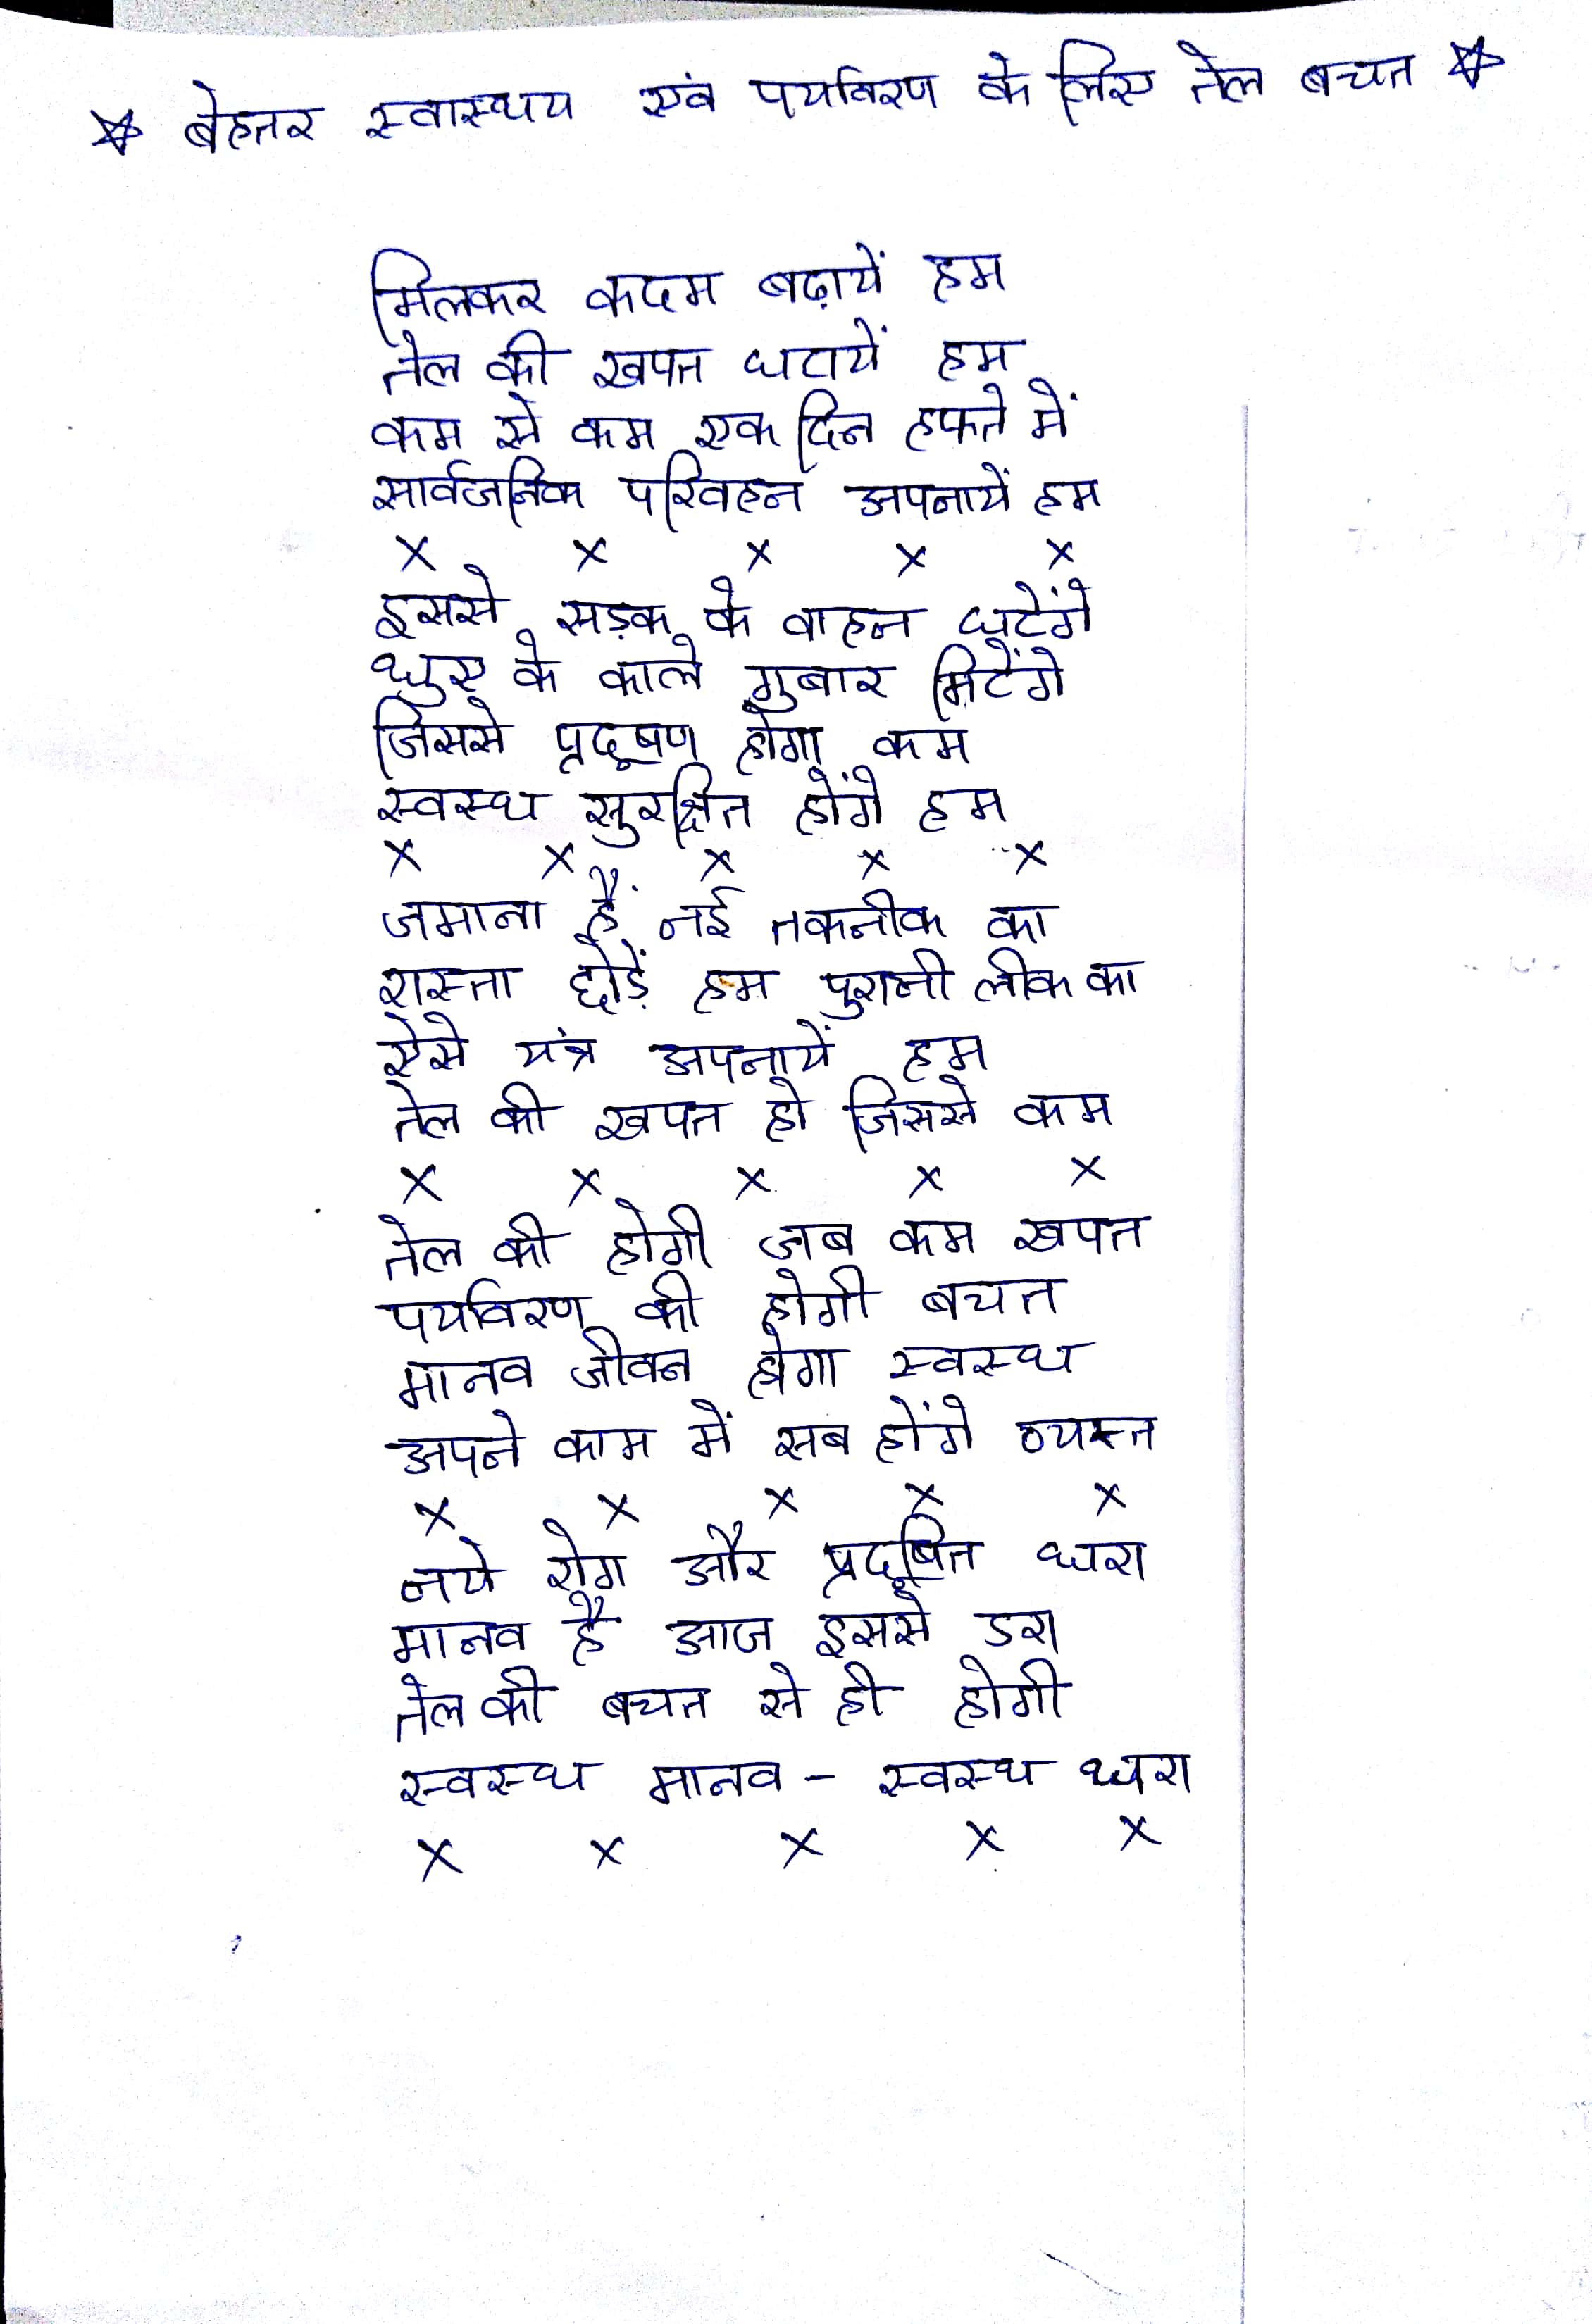 ☆ बेहतर स्वास्थय एवं पर्यावरण के लिए तेल बचत ☆
मिलकर कदम बढ़ायें हम
तेल की खपत घटायें हम
कम से कम एक दिन हफ्ते में
सार्वजनिक परिवहन अपनायें हम
x x x x x
इससे सड़क के वाहन घटेंगे
धुए के काले गुबार मिटेंगे
जिससे प्रदूषण होगा कम
स्वस्थ सुरक्षित होंगे हम
x x x x x
जमाना हैं नई तकनीक का
रास्ता छोड़ें हम पुरानी लीक का
ऐसे यंत्र अपनायें हम
तेल की खपत हो जिससे कम
x x x x x
तेल की होगी जब कम खपत
पर्यावरण की होगी बचत
मानव जीवन होगा स्वस्थ
अपने काम में सब होंगे व्यस्त
x x x x x
नये रोग और प्रदूषित धरा
मानव है आज इससे डरा
तेल की बचत से ही होगी
स्वस्थ मानव - स्वस्थ धरा
x x x x x